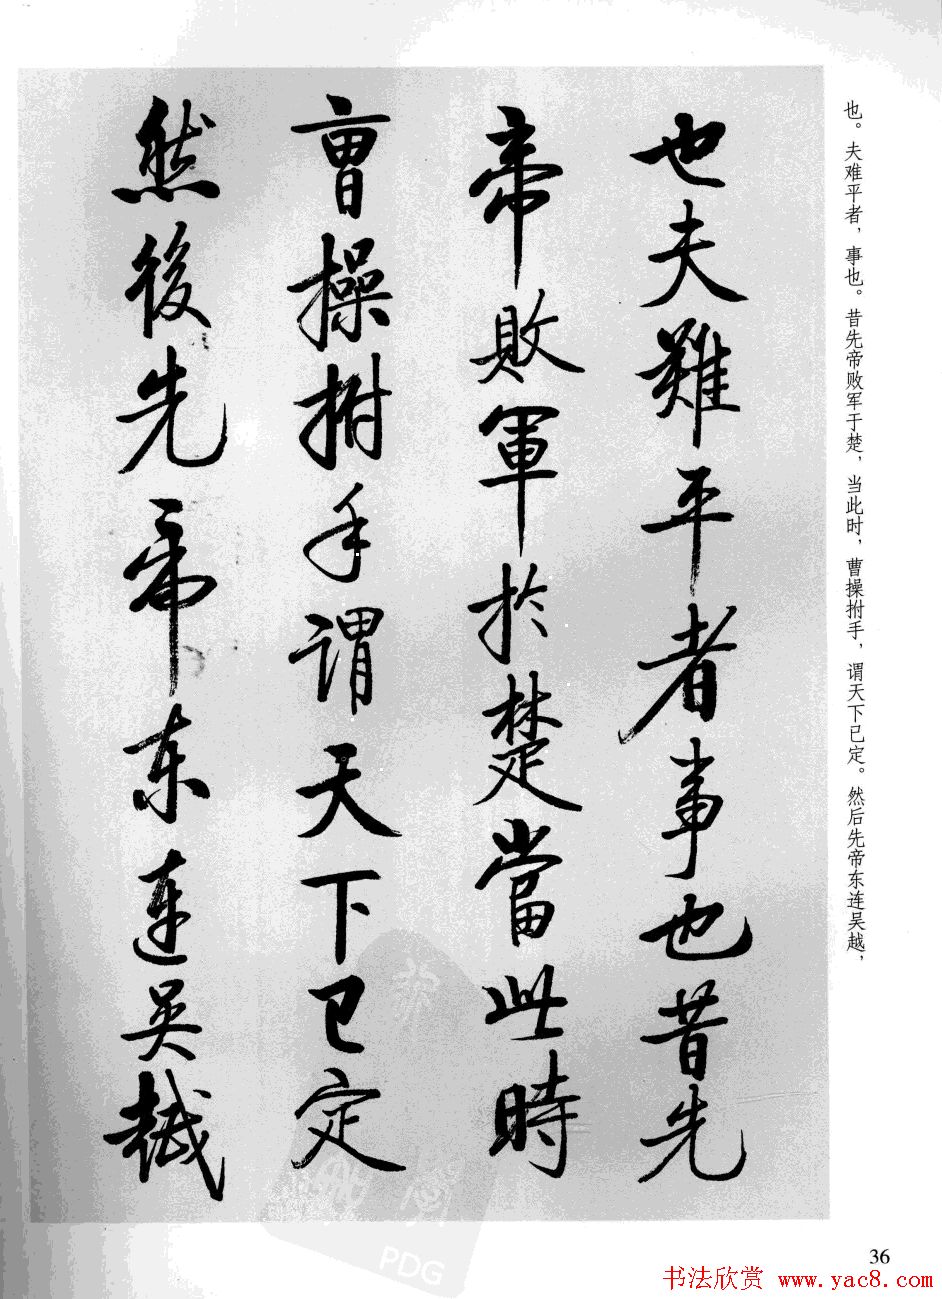 也夫難平者事也昔先
帝敗軍於楚當此時
曹操拊手謂天下已定
然後先帝东連吴越
也。夫难平者，事也。昔先帝败军于楚，当此时，曹操拊手，谓天下已定。然后先帝东连吴越，
36
书法欣赏 www.yac8.com
PDG